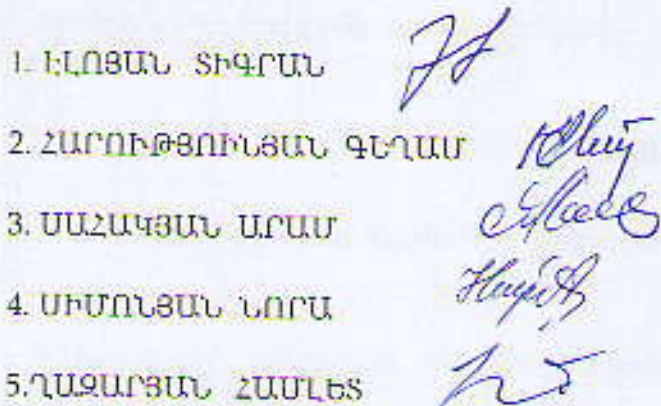 1. ԷԼՈՅԱՆ ՏԻԳՐԱՆ
2. ՀԱՐՈՒԹՅՈՒՆՅԱՆ ԳԵՂԱՄ
3. ՍԱՀԱԿՅԱՆ ԱՐԱՄ
4. ՍԻՄՈՆՅԱՆ ՆՈՐԱ
5.ՂԱԶԱՐՅԱՆ ՀԱՄԼԵՏ